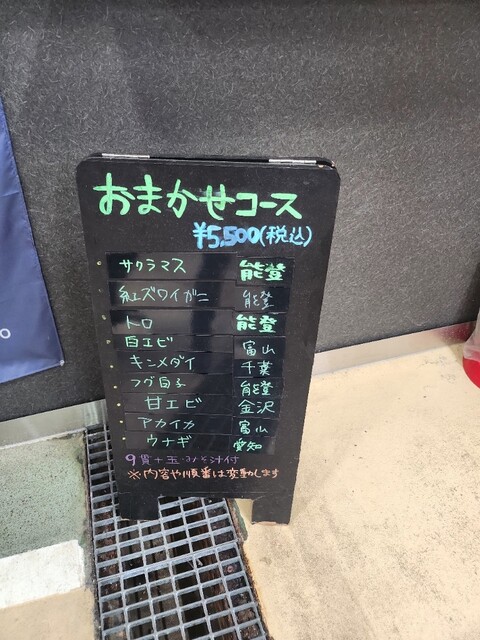 おまかせコース
¥5,500(税込)
サクラマス 能登
紅ズワイガニ 能登
トロ 能登
白エビ 富山
キンメダイ 千葉
フグ白子 能登
甘エビ 金沢
アカイカ 富山
ウナギ 愛知
9貫+玉・みそ汁付
※内容や順番は変動します